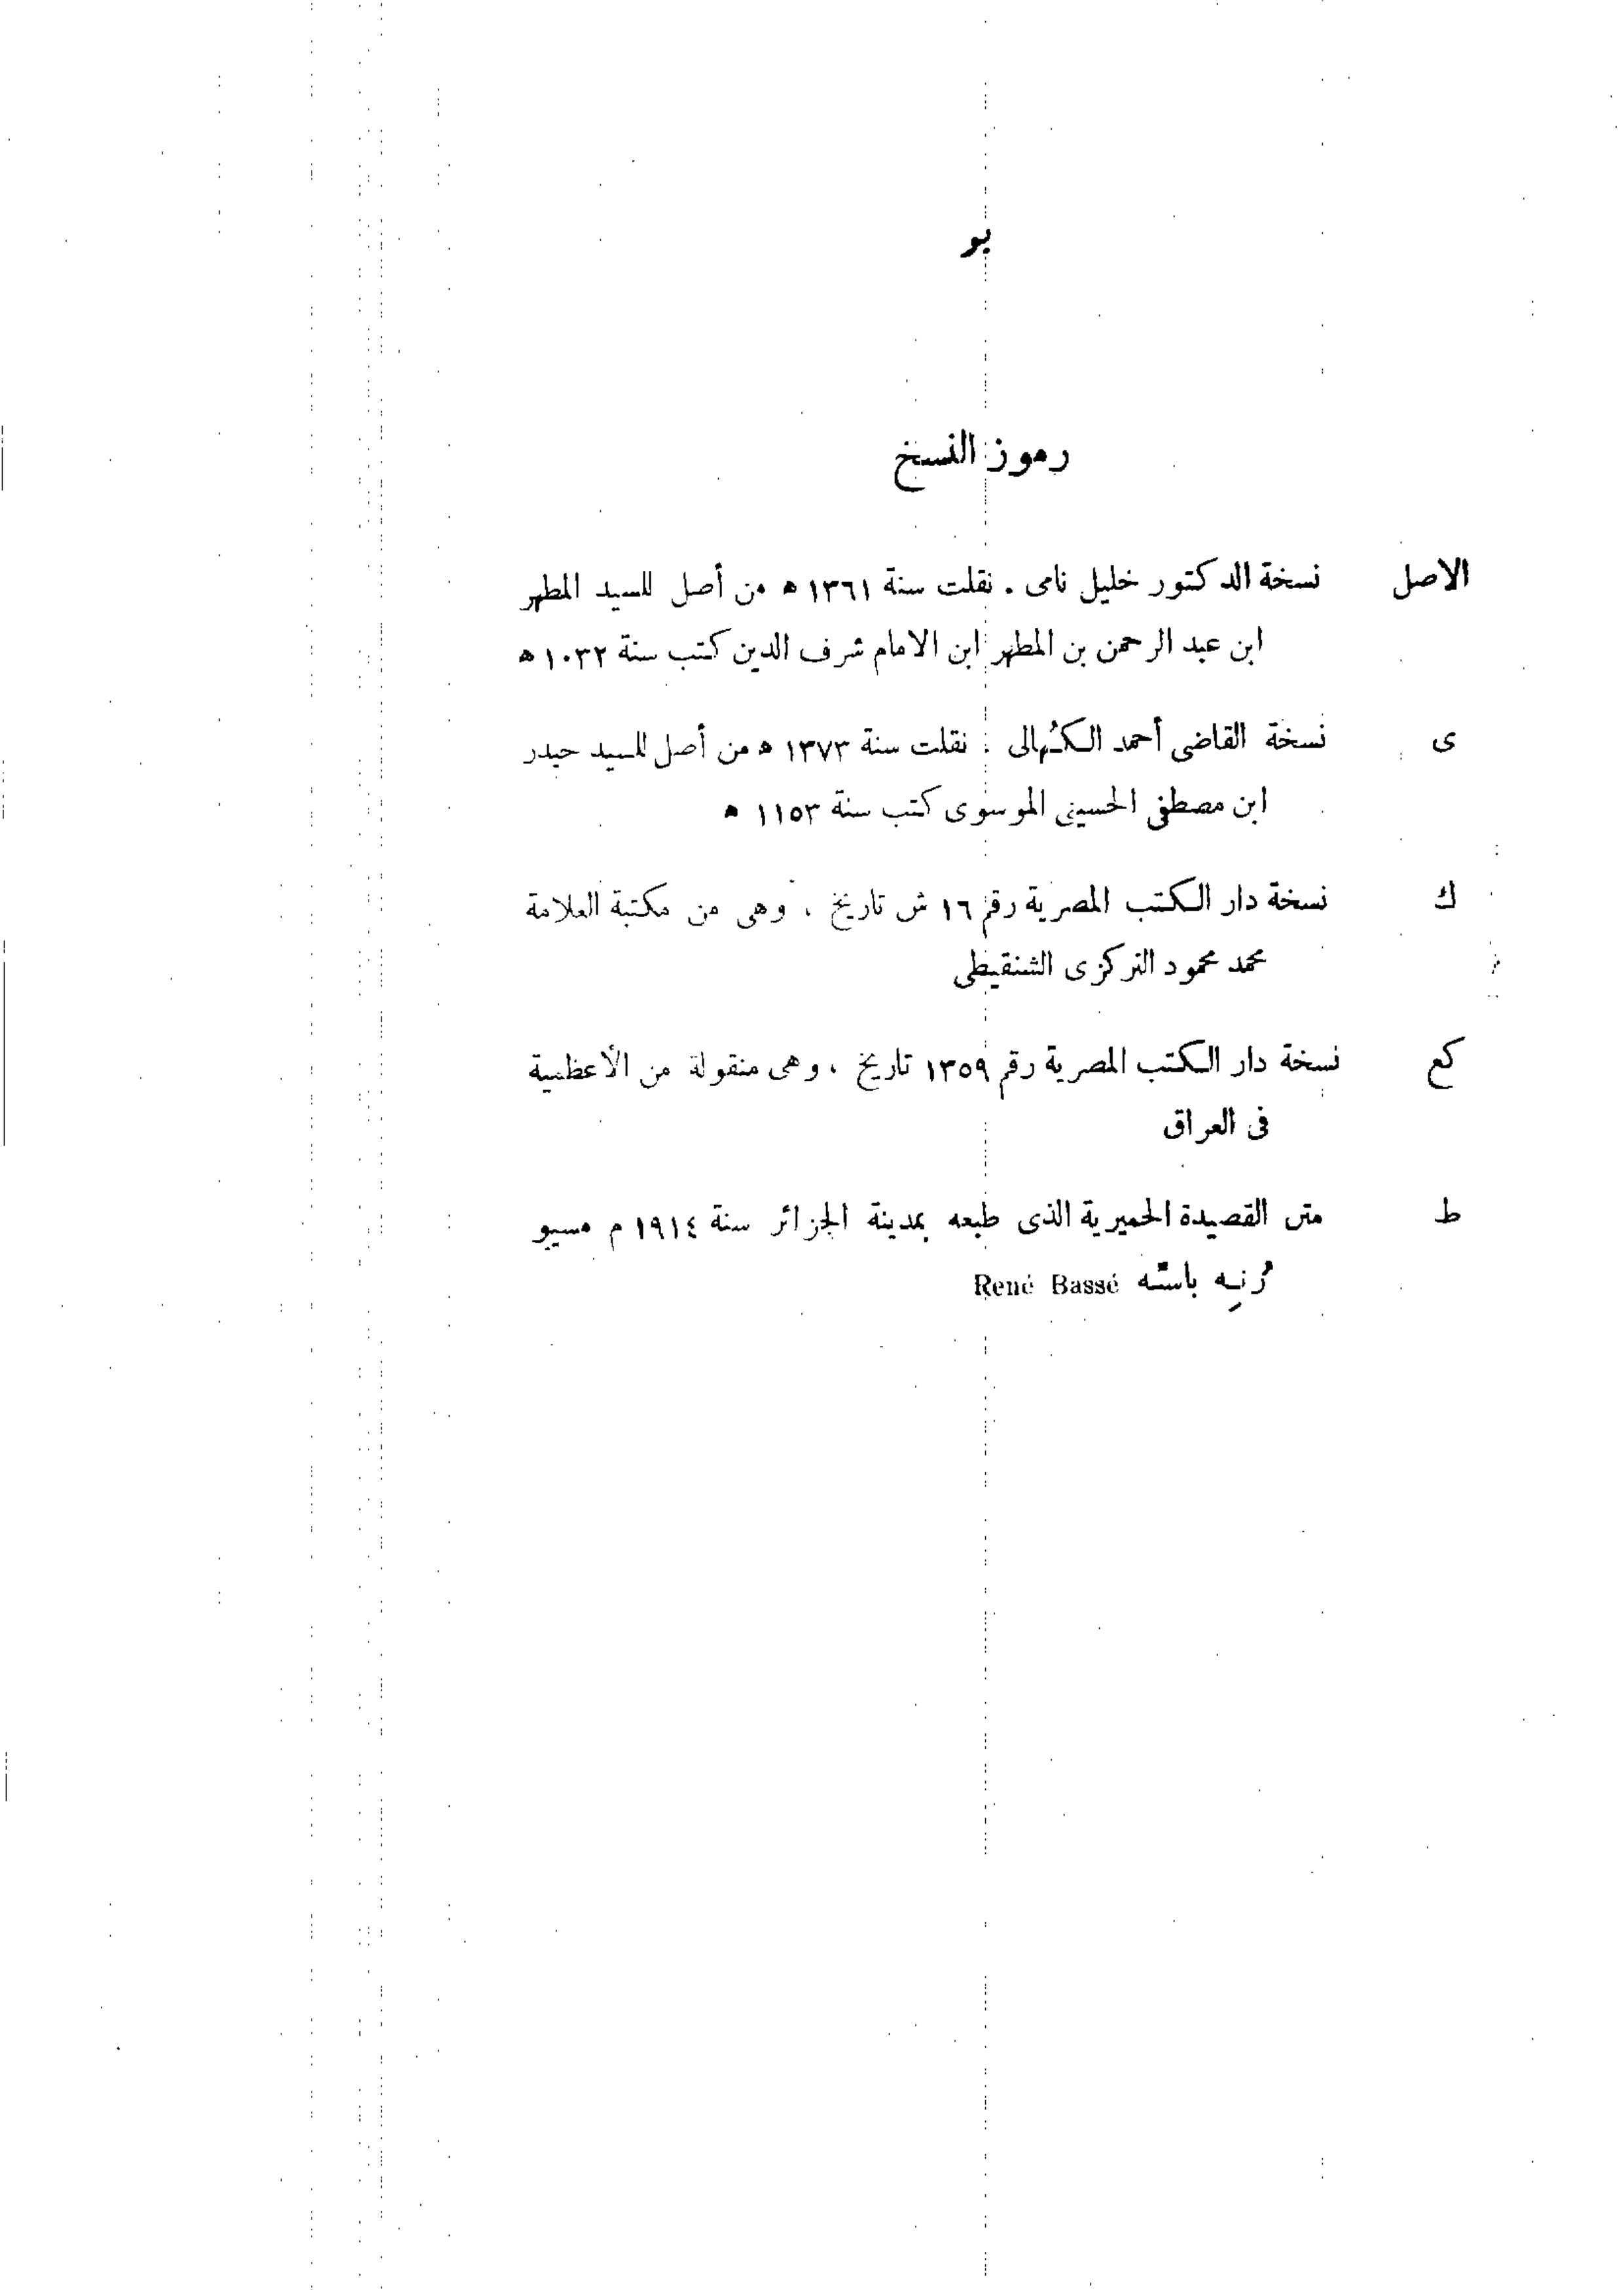 يو
رموز النسخ
الاصل نسخة الدكتور خليل نامى . نقلت سنة ١٣٦١ ه من أصل للسيد المطهر
ابن عبد الرحمن بن المطهر ابن الامام شرف الدين كتب سنة ١٠٣٢ ه
ى نسخة القاضى أحمد الكُهالى . نقلت سنة ١٣٧٣ ه من أصل للسيد حيدر
ابن مصطفى الحسينى الموسوى كتب سنة ١١٥٣ ه
ك نسخة دار الكتب المصرية رقم ١٦ ش تاريخ ، وهى من مكتبة العلامة
محمد محمود التركزى الشنقيطى
كع نسخة دار الكتب المصرية رقم ١٣٥٩ تاريخ ، وهى منقولة من الأعظمية
فى العراق
ط متن القصيدة الحميرية الذى طبعه بمدينة الجزائر سنة ١٩١٤ م مسيو
رُنِيه باسّه René Bassé